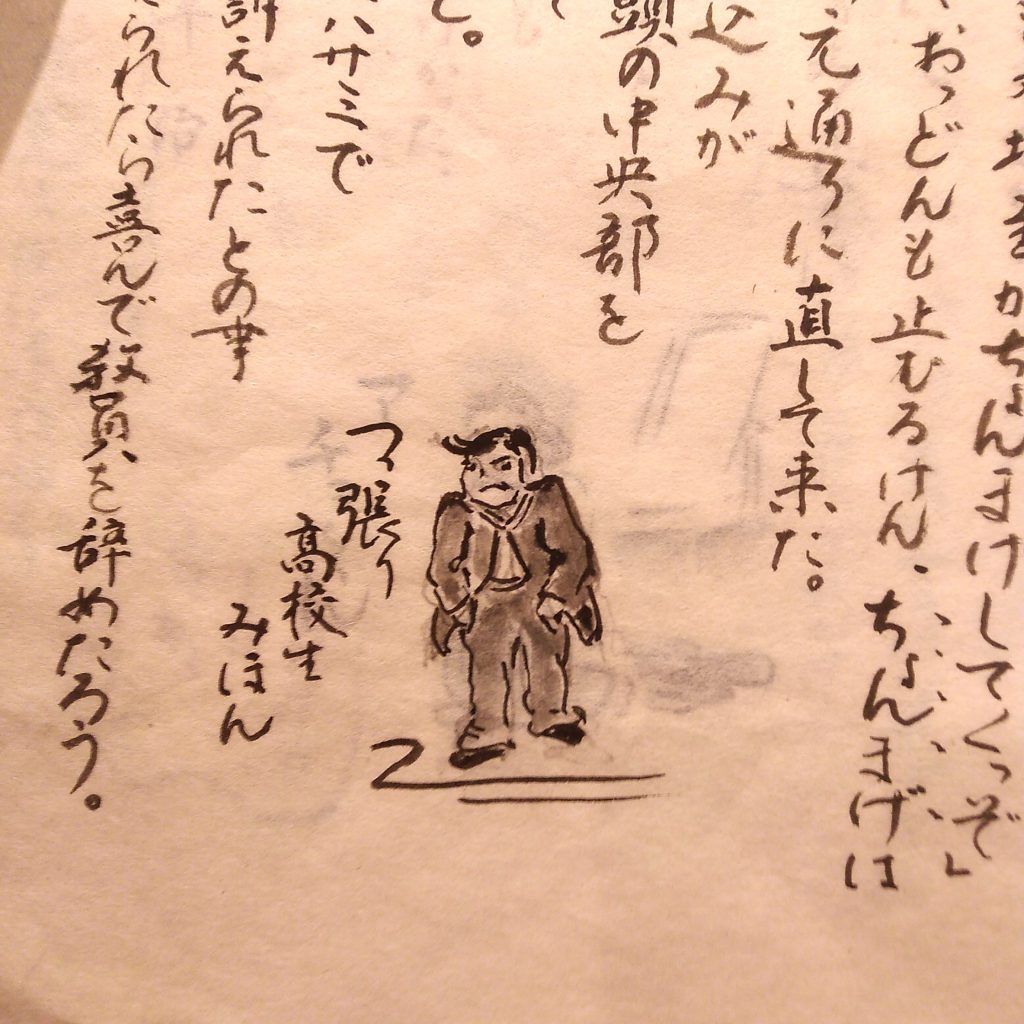 かちょんまげしてくっぞ」
おっどんも止むるけん、ちょんまげは
元通りに直して来た。
込みが
頭の中央部を
と。
ハサミで
訴えられたとの事
られたら喜んで教員を辞めたろう。
つっ張り
高校生
みほん